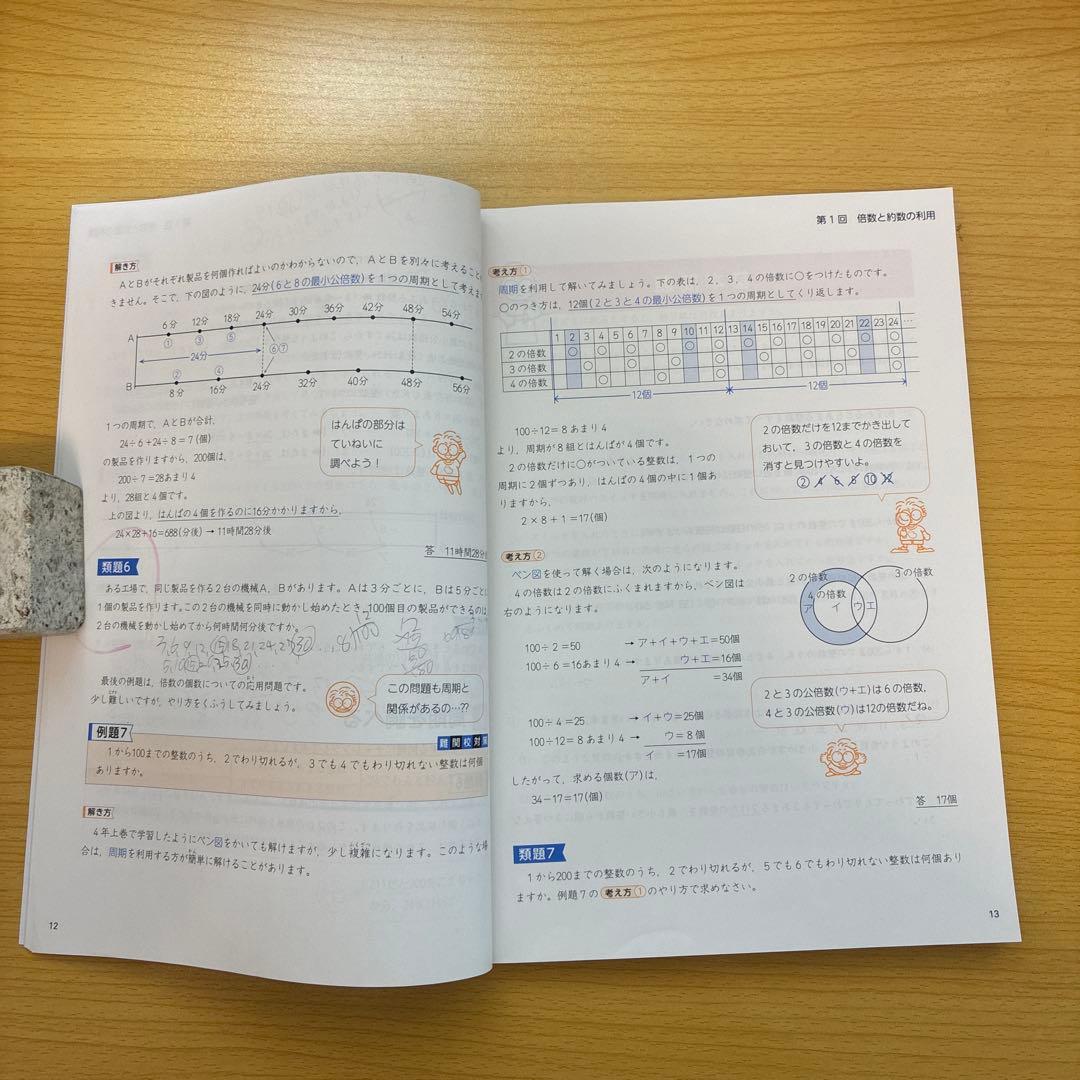 解き方
AとBがそれぞれ製品を何個作ればよいのかわからないので、AとBを別々に考えること
きません。そこで、下の図のように、24分(6と8の最小公倍数)を1つの周期として考えま
6分 12分 18分 24分 30分 36分 42分 48分 54分
A
① ③ ⑤ ⑥⑦
24分
② ④
B
8分 16分 24分 32分 40分 48分 56分
1つの周期で、AとBが合計、
24÷6+24÷8=7(個)
の製品を作りますから、200個は、
200÷7=28あまり4
より、28組と4個です。
上の図より、はんぱの4個を作るのに16分かかりますから、
24×28+16=688(分後)→11時間28分後
はんぱの部分は
ていねいに
調べよう!
答 11時間28分
類題6
ある工場で、同じ製品を作る2台の機械A、Bがあります。Aは3分ごとに、Bは5分ごとに
1個の製品を作ります。この2台の機械を同時に動かし始めたとき、100個目の製品ができるのは、
2台の機械を動かし始めてから何時間何分後ですか。
最後の例題は、倍数の個数についての応用問題です。
少し難しいですが、やり方をくふうしてみましょう。
この問題も周期と
関係があるの…??
例題7
難関校対策
1から100までの整数のうち、2でわり切れるが、3でも4でもわり切れない整数は何個
ありますか。
解き方
4年上巻で学習したようにベン図をかいても解けますが、少し複雑になります。このような場
合は、周期を利用する方が簡単に解けることがあります。
12
第1回 倍数と約数の利用
考え方①
周期を利用して解いてみましょう。下の表は、2、3、4の倍数に○をつけたものです。
○のつき方は、12個(2と3と4の最小公倍数)を1つの周期としてくり返します。
1 2 3 4 5 6 7 8 9 10 11 12 13 14 15 16 17 18 19 20 21 22 23 24 …
2の倍数 ○ ○ ○ ○ ○ ○ ○ ○ ○ ○ ○ ○
3の倍数 ○ ○ ○ ○ ○ ○ ○ ○
4の倍数 ○ ○ ○ ○ ○ ○
12個 12個
100÷12=8あまり4
より、周期が8組とはんぱが4個です。
2の倍数だけに○がついている整数は、1つの
周期に2個ずつあり、はんぱの4個の中に1個あ
りますから、
2×8+1=17(個)
2の倍数だけを12までかき出して
おいて、3の倍数と4の倍数を
消すと見つけやすいよ。
② 4 6 8 ⑩ 12
考え方②
ベン図を使って解く場合は、次のようになります。
4の倍数は2の倍数にふくまれますから、ベン図は
右のようになります。
2の倍数 3の倍数
4の倍数
ア イ ウ エ
100÷2=50 →ア+イ+ウ+エ=50個
100÷6=16あまり4 → ウ+エ=16個
ア+イ =34個
100÷4=25 →イ+ウ=25個
100÷12=8あまり4 → ウ=8個
イ =17個
したがって、求める個数(ア)は、
34−17=17(個)
2と3の公倍数(ウ+エ)は6の倍数、
4と3の公倍数(ウ)は12の倍数だね。
答 17個
類題7
1から200までの整数のうち、2でわり切れるが、5でも6でもわり切れない整数は何個あり
ますか。例題7の考え方①のやり方で求めなさい。
13